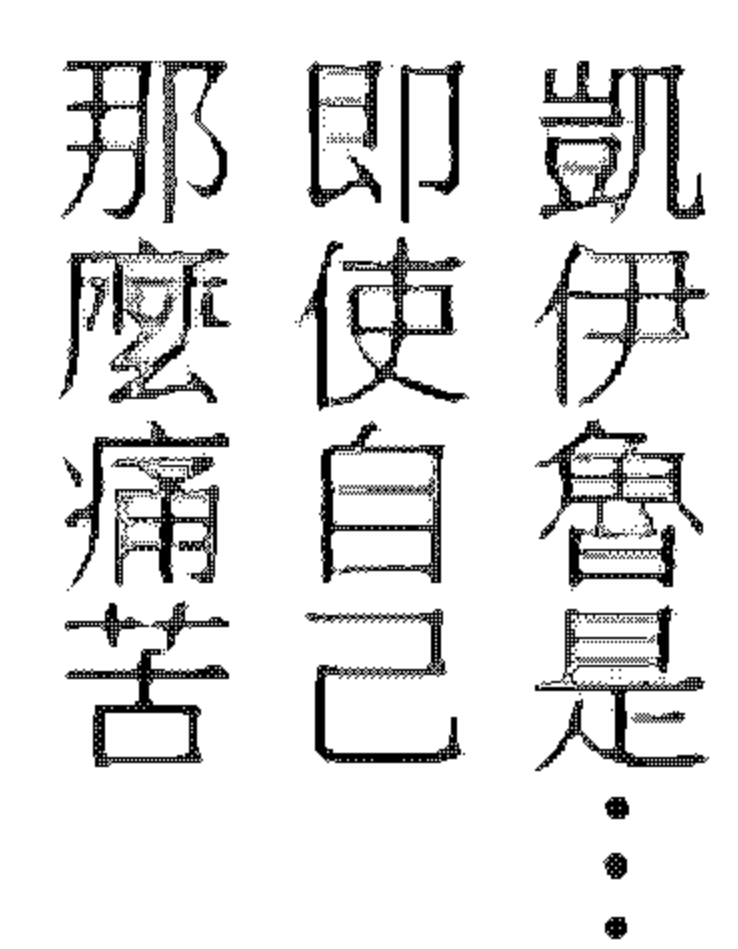 凱伊魯是...
即使自己
那麼痛苦